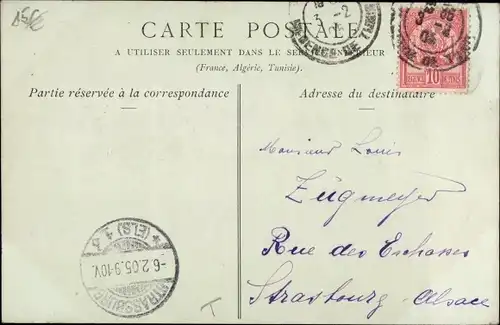 CARTE POSTALE
A UTILISER SEULEMENT DANS LE SERVICE INTÉRIEUR
(France, Algérie, Tunisie).
Partie réservée à la correspondance
Adresse du destinataire
10
Monsieur Louis
Zugmeyer
Rue des Echasses
Strasbourg Alsace
STRASSBURG
-6.2.05.9-10V.
(ELS) 4 b
T